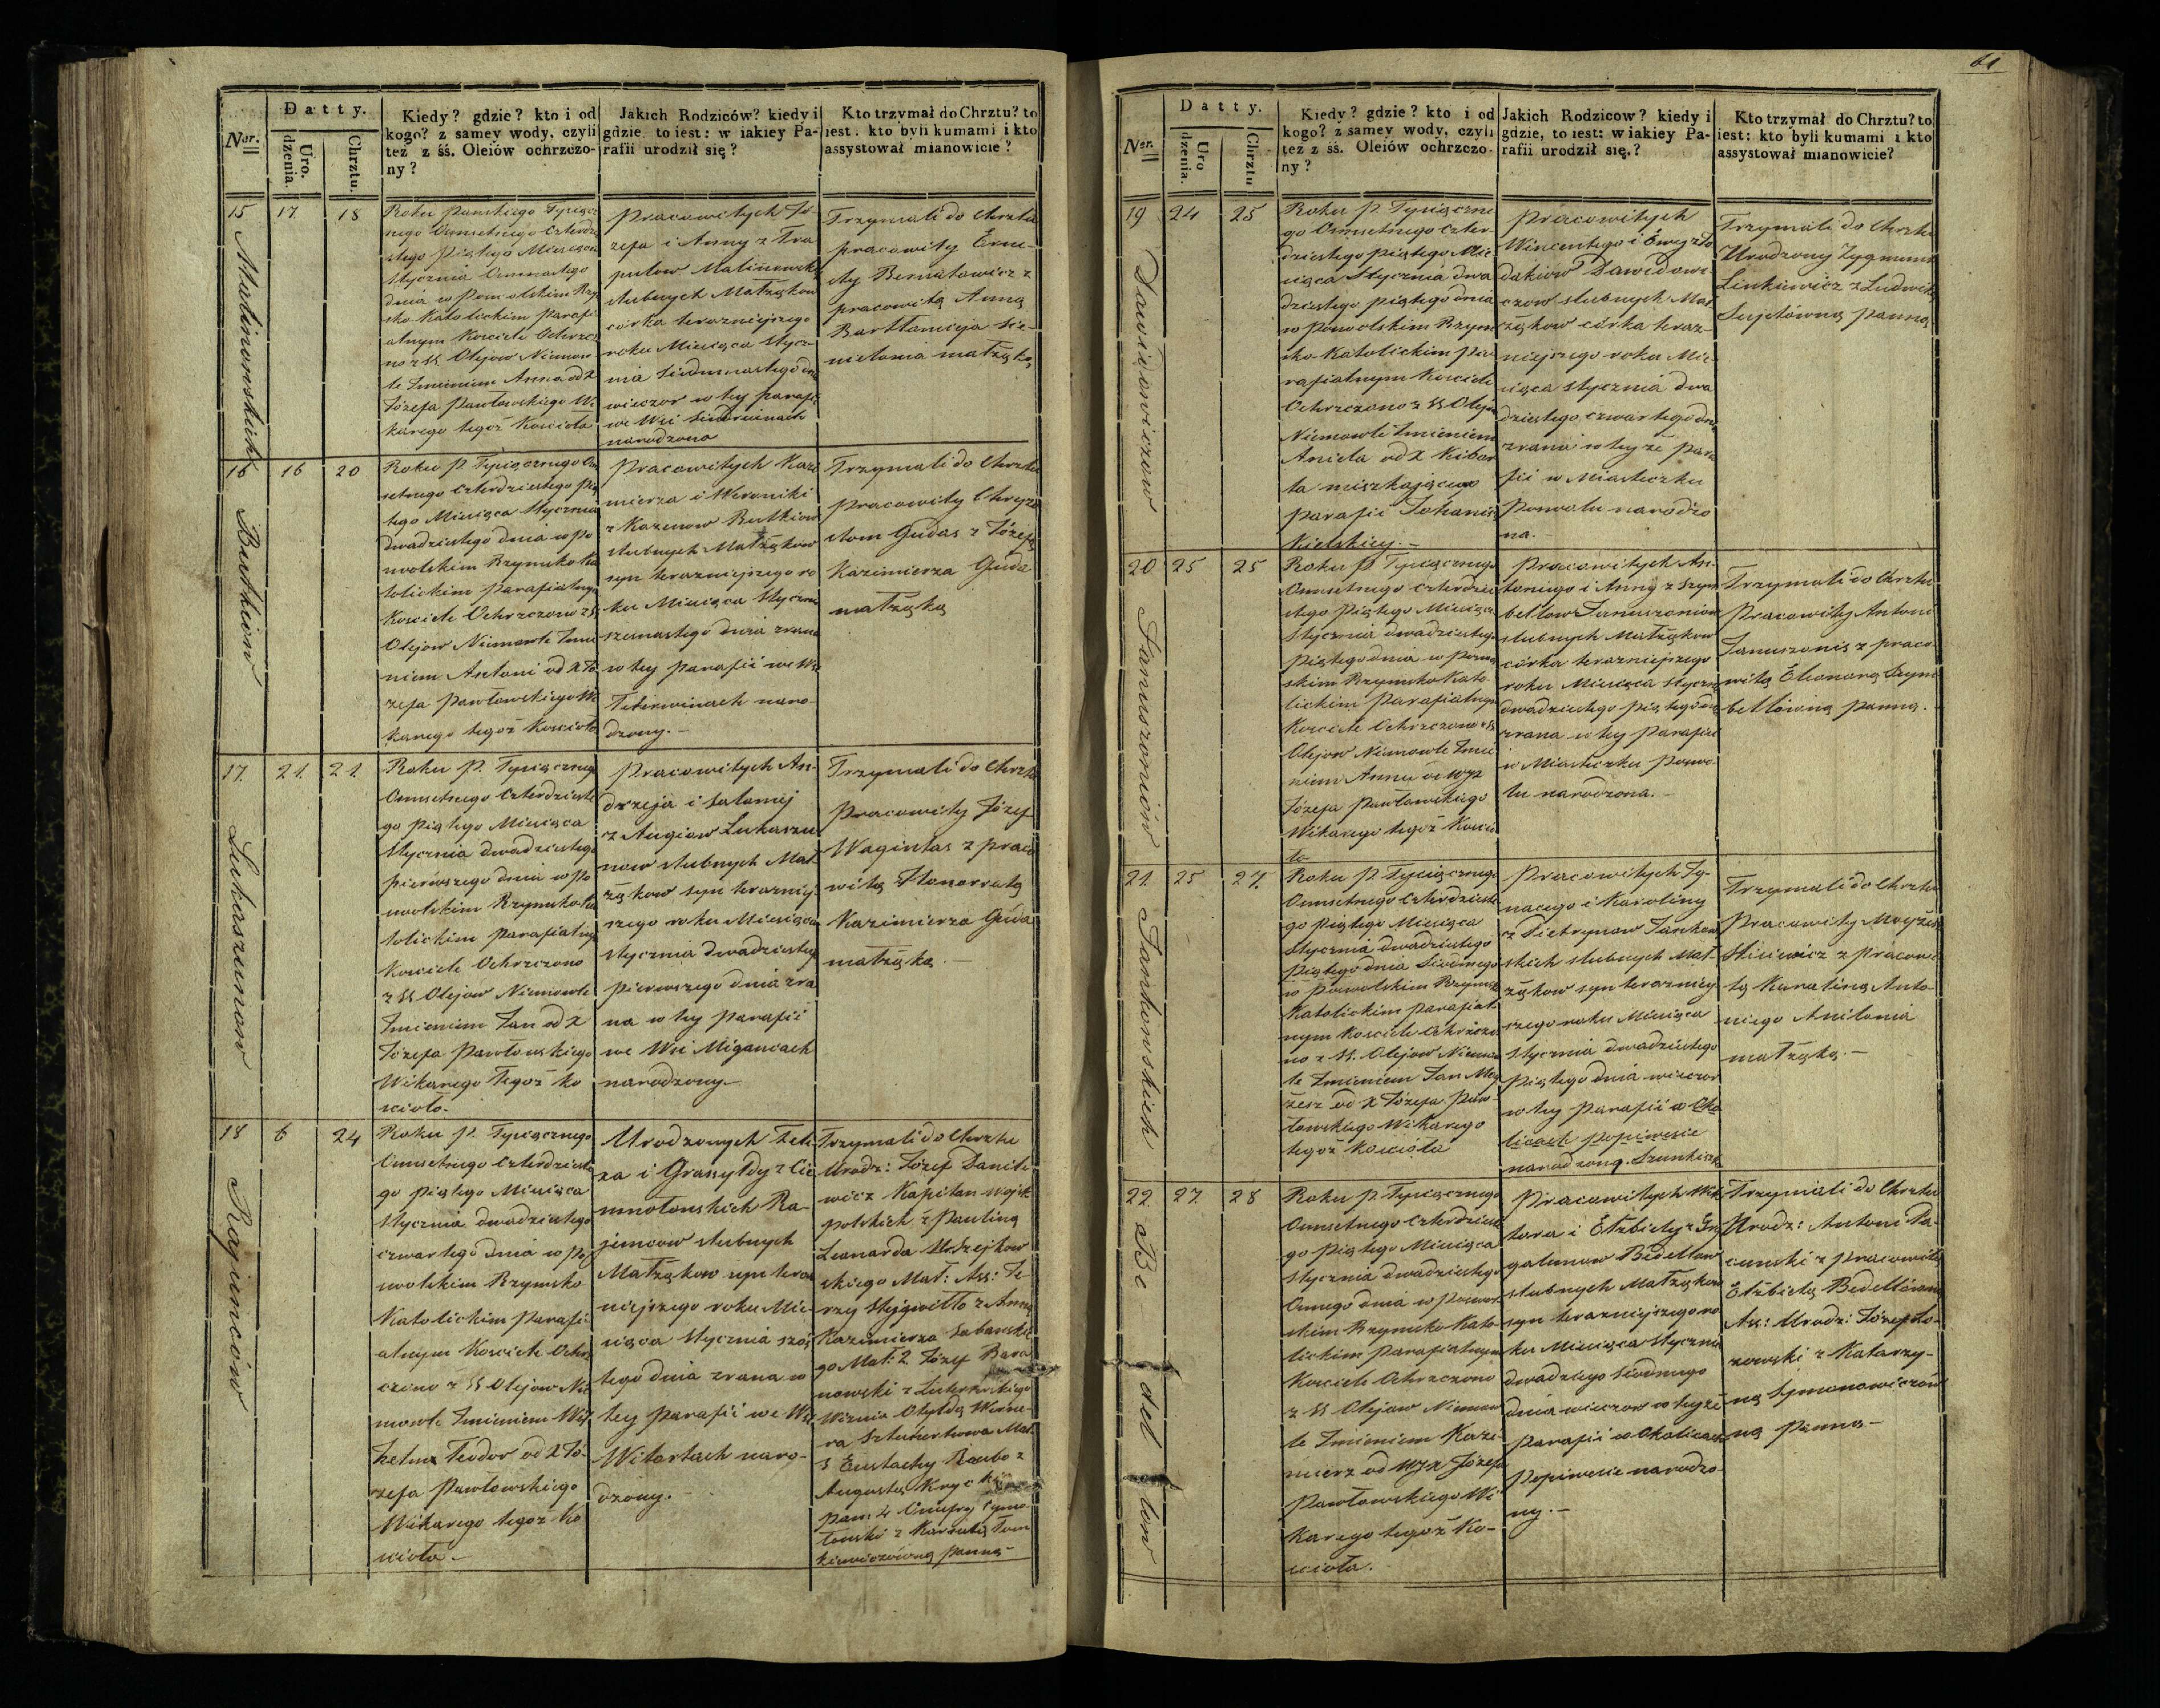 Datty.
Ner.
Uro.
dzenia.
Chrztu.
Kiedy? gdzie? kto i od
kogo? z samey wody, czyli
też z śś. Oleiów ochrzczo-
ny?
Jakich Rodziców? kiedy i
gdzie, to iest: w iakiey Pa-
rafii urodził się?
Kto trzymał do Chrztu? to
iest: kto byli kumami i kto
assystował mianowicie?
15
Malinowskich
17
18
Roku Pańskiego Tysiącz
nego Osmsetnego Czterdzie
stego piątego Miesiąca
Stycznia Osmnastego
dnia w Ponwolskim Rzy
sko Katolickim Parafi
alnym Kosciele Ochrzczo
no z SS. Olejow Niemow
le Imieniem Anna od X
Józefa Pawłowskiego Wi
karego tegoż Kościoła
pracowitych Jó
zefa i Anny z Tra
pulow Malinowskich
slubnych Małżąkow
córka terazniejszego
roku Miesiąca Stycz
nia Siedmnastego dnia
wieczor w tey parafii
we Wsi
narodzona
Trzymali do Chrztu
pracowity Erne
sty Bernatowicz z
pracowitą Anną
Bartłomieja
małżąką
16
Butkiow
16
20
Roku P. Tysiącznego Os
setnego Czterdziestego Pią
tego Miesiąca Stycznia
dwadziestego dnia w Po
nwolskim Rzymsko Ka
tolickim parafialnym
Kosciele Ochrzczono z SS
Olejow Niemowle Imie
niem Antoni od X Jó
zefa Pawłowskiego Wi
karego tegoż Kościoła
Pracowitych Kazi
mierza i Weroniki
z Kazenow Butkiow
slubnych Małżąkow
syn terazniejszego ro
ku Miesiąca Stycznia
szesnastego dnia zrana
w tey parafii we Wsi
Teterwinach naro
dzony.-
Trzymali do Chrztu
pracowity Chryzo
stom Gudas z Józefą
Kazimierza Guda
małżąką
17.
Łukaszunow
21.
21
Roku P. Tysiącznego
Osmsetnego Czterdzieste
go piątego Miesiąca
Stycznia dwadziestego
pierwszego dnia w Po
nwolskim Rzymsko Ka
tolickim parafialnym
Kosciele Ochrzczono
z SS Olejow Niemowle
Imieniem Jan od X
Józefa Pawłowskiego
Wikarego Tegoż ko
scioła.
Pracowitych An
drzeja i Salomej
z Augiow Łukaszu
now slubnych Mał
żąkow syn terazniej
szego roku Miesiąca
stycznia dwadziestego
pierwszego dnia zra
na w tey parafii
we Wsi Migancach
narodzony.-
Trzymali do Chrztu
Pracowity Józef
Wagintas z praco
witą Honorratą
Kazimierza Guda
małżąką.-
18
Rajuncow
6
24
Roku P. Tysiącznego
Osmsetnego Czterdzieste
go piątego Miesiąca
Stycznia dwadziestego
czwartego dnia w Po
nwolskim Rzymsko
Katolickim Parafi
alnym Kosciele Ochrz
czono z SS Olejow Nie
mowle Imieniem Wil
helm Teodor od X Jó
zefa Pawłowskiego
Wikarego tegoż Ko
scioła.-
Urodzonych Feli
xa i Grasyldy z Cie
mnołonskich Ra
juncow slubnych
Małżąkow syn teraz
niejszego roku Mie
siąca Stycznia szós
tego dnia zrana w
tey parafii we Wsi
Witartach naro
dzony.-
Trzymali do Chrztu
Urodz: Józef Danile
wicz Kapitan wojsk
polskich z Pauliną
Leonarda
skiego Mał: Ass: Je
rzy z Anną
Kazimierza
go Mał: 2 Józef Bara
nowski z
Otyldą
Mał.
3 Eustachy z
Augustą
pan: 4 Onufry
z
panną-
61
Datty.
Ner.
Uro
dzenia.
Chrztu
Kiedy? gdzie? kto i od
kogo? z samey wody, czyli
też z śś. Oleiów ochrzczo-
ny?
Jakich Rodzicow? kiedy i
gdzie, to iest: w iakiey Pa-
rafii urodził się.?
Kto trzymał do Chrztu? to
iest: kto byli kumami i kto
assystował mianowicie?
19
Dawidowiczow
24
25
Roku P. Tysiączne
go Osmsetnego Czter
dziestego piątego Mie
siąca Stycznia dwa
dziestego piątego dnia
w Ponwolskim Rzym
sko Katolickim pa
rafialnym Kosciele
Ochrzczono z SS Olejow
Niemowle Imieniem
Aniela od X Kibor
ta mieszkającego
parafii Johanis
kielskiey.-
Pracowitych
Wincentego i Ewy z Do
dakiow Dawidowi
czow slubnych Mał
żąkow córka teraz
niejszego roku Mie
siąca stycznia dwa
dziestego czwartego dnia
zrana w tey że Para
fii w Miasteczku
Ponwolu narodzo
na.-
Trzymali do Chrztu
Urodzony Zygmunt
Linkiewicz z Ludwiką
panną
20
Januszoniów
25
25
Roku P. Tysiącznego
Osmsetnego Czterdzie
stego piątego Miesiąca
Stycznia dwadziestego
piątego dnia w Ponwol
skim Rzymsko Kato
lickim Parafialnym
Kosciele Ochrzczono z SS
Olejow Niemowle Imie
niem Anna od WJX
Józefa Pawłowskiego
Wikarego tegoż Koscio
ła
Pracowitych An
toniego i Anny z Szym
bellow Januszoniow
slubnych Małżąkow
córka terazniejszego
roku Miesiąca stycznia
dwadziestego piątego dnia
zrana w tey Parafii
w Miasteczku Ponwo
lu narodzona.-
Trzymali do Chrztu
Pracowity Antoni
Januszonis z praco
witą Eleonorą Szym
bellowną panną.
21.
Jankowskich
25
27.
Roku P. Tysiącznego
Osmsetnego Czterdzieste
go piątego Miesiąca
Stycznia dwadziestego
piątego dnia Siodmego
w Ponwolskim Rzymsko
Katolickim parafial
nym Kosciele Ochrzczo
no z SS. Olejow Niemow
le Imieniem Jan Moy
żesz od X Józefa Paw
łowskiego Wikarego
tegoż Kościoła
Pracowitych Ig
nacego i Karoliny
z Pietrynow Jankow
skich slubnych Mał
żąkow syn terazniey
szego roku Miesiąca
Stycznia dwadziestego
piątego dnia wieczor
w tey Parafii w Oko
licach Popiwesie
narodzony.
Trzymali do Chrztu
Pracowity Moyżesz
z pracowi
tą Karoliną Anto
niego
małżąką.-
22.
Bedellow
27.
28
Roku P. Tysiącznego
Osmsetnego Czterdzieste
go piątego Miesiąca
Stycznia dwadziestego
Osmego dnia w Ponwol
skim Rzymsko Kato
lickim parafialnym
Kosciele Ochrzczono
z SS Olejow Niemow
le Imieniem Kazi
mierz od WJX Józefa
Pawłowskiego Wi
karego tegoż Ko
scioła.
Pracowitych Wik
tora i Elżbiety z In
galunow Bedellow
slubnych Małżąkow
syn terazniejszego ro
ku Miesiąca Stycznia
dwadziestego siodmego
dnia wieczor w teyże
parafii w Okolicach
Popiwesie narodzo
ny.-
Trzymali do Chrztu
Urodz: Antoni
z Pracowitą
Elżbietą Bedellówną
Ass: Urodz: Józef
z Katarzy
ną Symonowiczów
ną Panną-